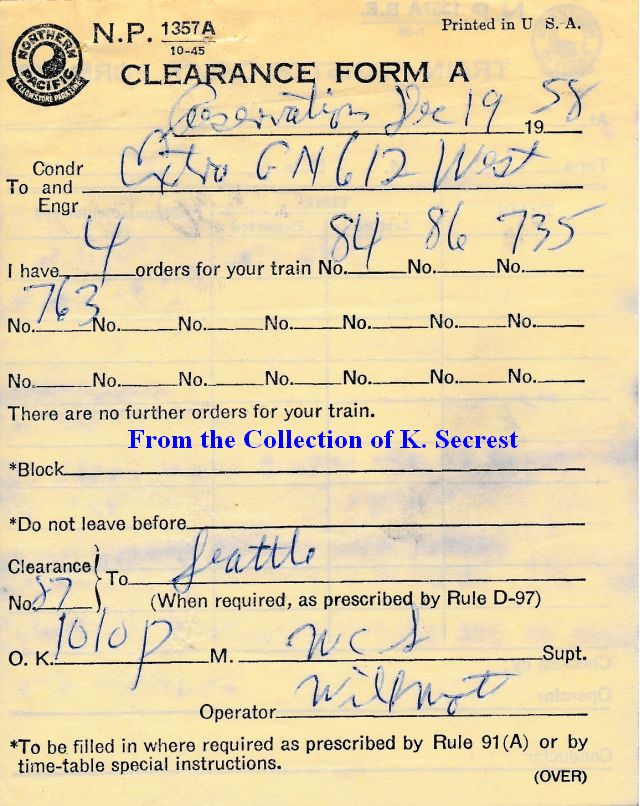 NORTHERN PACIFIC
YELLOWSTONE PARK LINE
N.P. 1357A
10-45
Printed in U S. A.
CLEARANCE FORM A
Reservation Dec 19 1958
Condr
To and Extra GN 612 West
Engr
I have 4 orders for your train No. 84 No. 86 No. 735
No. 763 No. No. No. No. No. No.
No. No. No. No. No. No. No.
There are no further orders for your train.
From the Collection of K. Secrest
*Block
*Do not leave before
Clearance
To Seattle
No. 87 (When required, as prescribed by Rule D-97)
O. K. 1010 p M. WCS Supt.
Operator
*To be filled in where required as prescribed by Rule 91(A) or by
time-table special instructions.
(OVER)